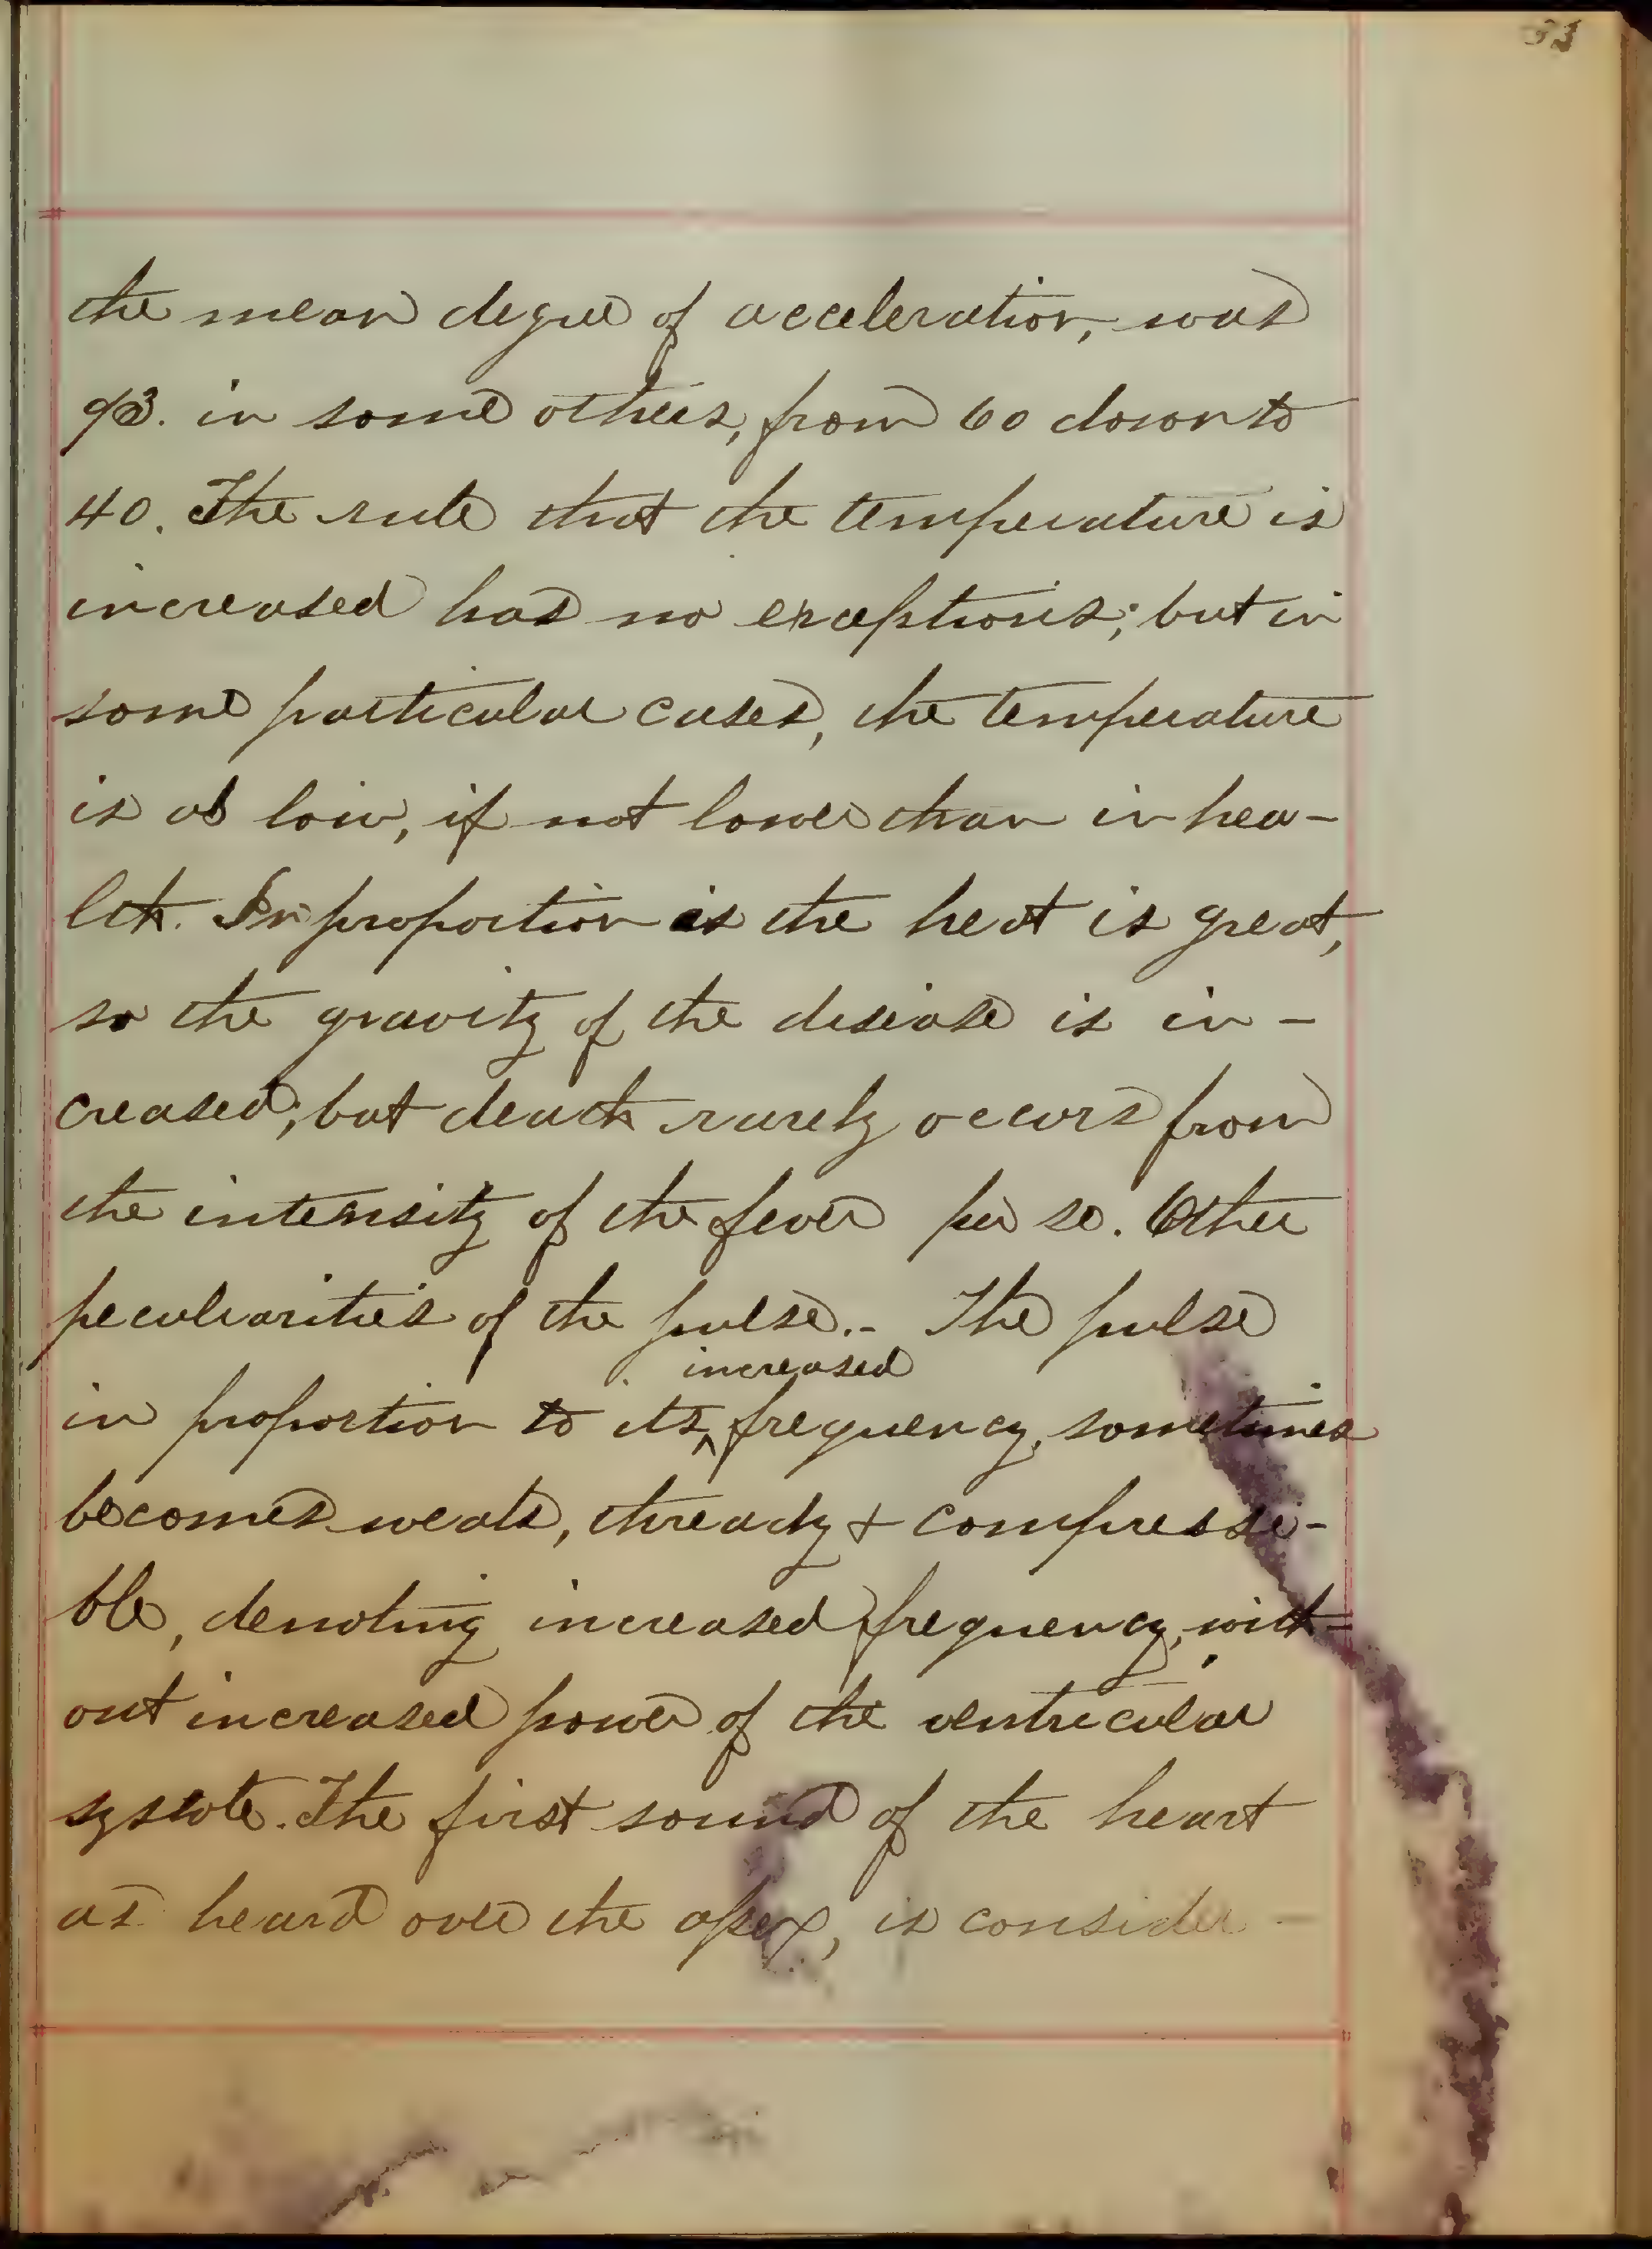 the mean degree of acceleration, was
93. in some others, from 60 down to
40. The rule that the temperature is
increased has no exceptions; but in
some particular cases, the temperature
is as low, if not lower than in hea-
lth. In proportion as the heat is great,
so the gravity of the disease is in-
creased; but death rarely occurs from
the intensity of the fever per se. Other
peculiarities of the pulse.- The pulse
increased
in proportion to its ^ frequency, sometimes
becomes weak, thready & compressi-
ble, denoting increased frequency, with-
out increased power of the ventricular
systole. The first sound of the heart
as heard over the apex, is consider-